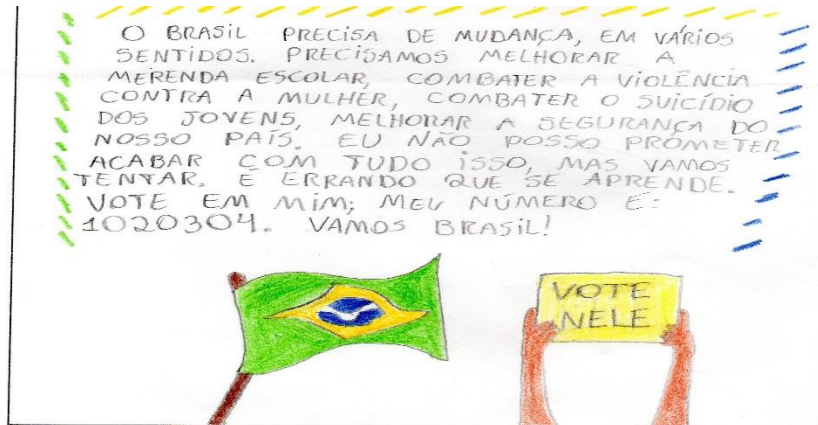 O BRASIL PRECISA DE MUDANÇA, EM VÁRIOS
SENTIDOS. PRECISAMOS MELHORAR A
MERENDA ESCOLAR, COMBATER A VIOLÊNCIA
CONTRA A MULHER, COMBATER O SUICÍDIO
DOS JOVENS, MELHORAR A SEGURANÇA DO
NOSSO PAÍS. EU NÃO POSSO PROMETER
ACABAR COM TUDO ISSO, MAS VAMOS
TENTAR. É ERRANDO QUE SE APRENDE.
VOTE EM MIM; MEU NÚMERO É:
1020304. VAMOS BRASIL!
VOTE
NELE